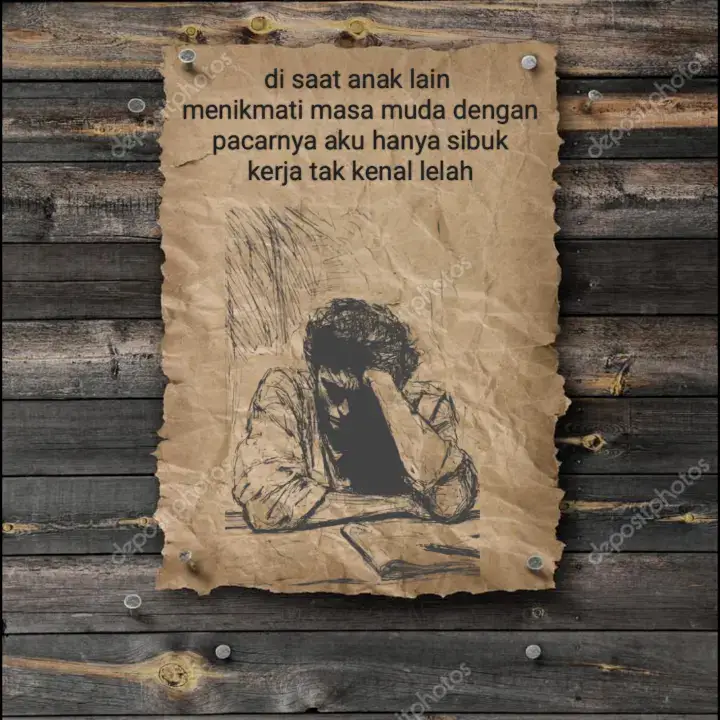 di saat anak lain
menikmati masa muda dengan
pacarnya aku hanya sibuk
kerja tak kenal lelah
depositphotos
depositphotos
depositphotos
depositphotos
depositphotos
depositphotos